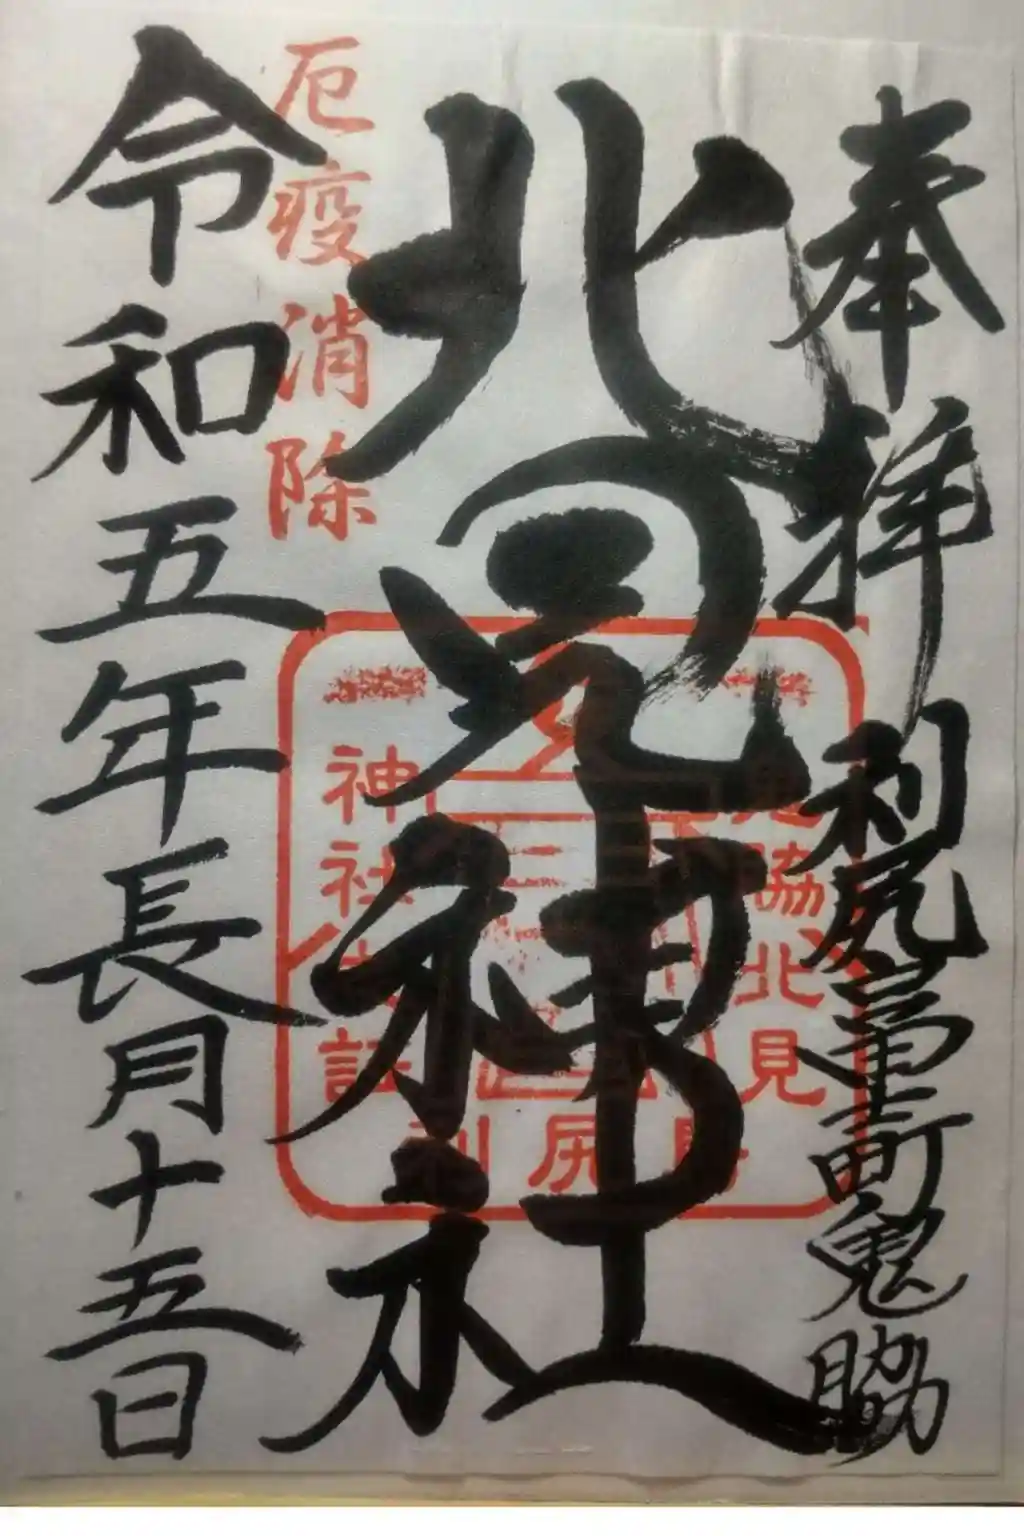 奉拝
利尻富士町鬼脇
北見神社
厄疫消除
令和五年長月十五日
鬼脇北見
神社
利尻島